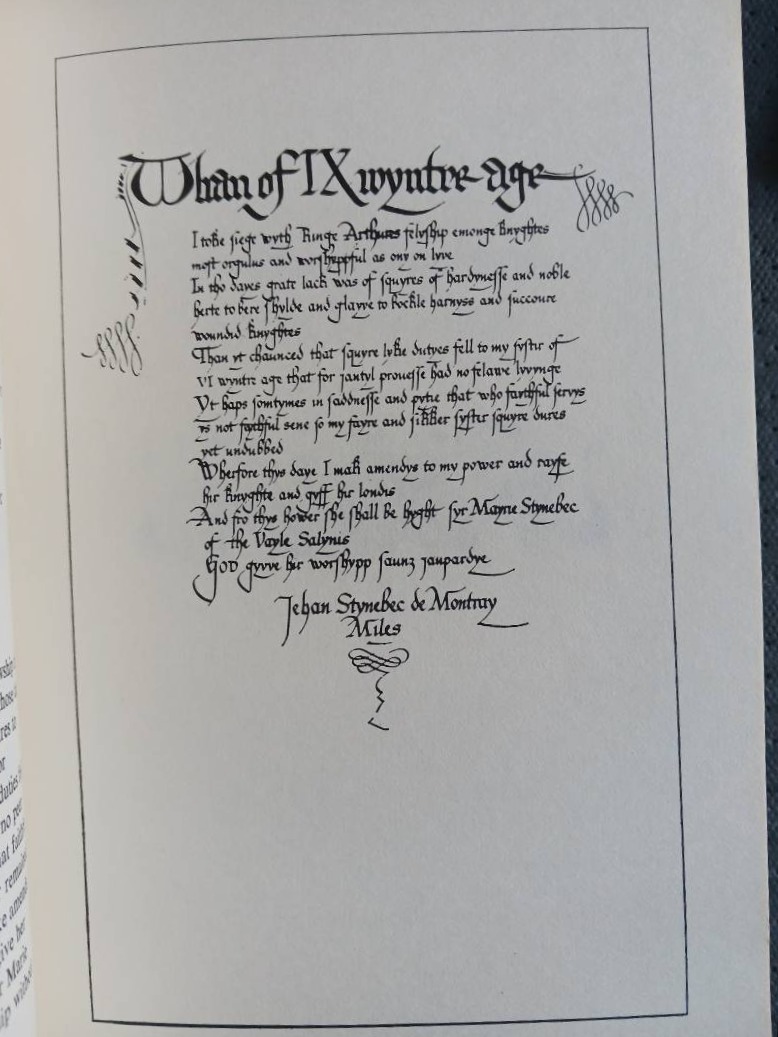 Whan of IX wyntre age
I toke siege wyth Kinge Arthures felyship emonge knyghtes
most orgulus and worsheppful as ony on lyve
In tho dayes grate lack was of squyres of hardynesse and noble
herte to bere shylde and glayve to bockle harnyss and succoure
woundid knyghtes
Than yt chaunced that squyre lyke dutyes fell to my systir of
VI wyntre age that for jantyl prouesse had no felawe lyvynge
Yt haps somtymes in saddnesse and pytie that who faythful servys
ys not faythful sene so my fayre and sikker syster squyre dures
yet undubbed
Wherfore thys daye I mak amendys to my power and rayse
hir knyghte and gyff hir londis
And fro thys hower she shall be hyght syr Mayrie Stynebec
of the Vayle Salynis
GOD gyvve hir worshypp saunz jaupardye
Jehan Stynebec de Montray
Miles
wship
those
res u
or
duties
no pee
at faith
remain
e amend
ive her
Marie
ip witho